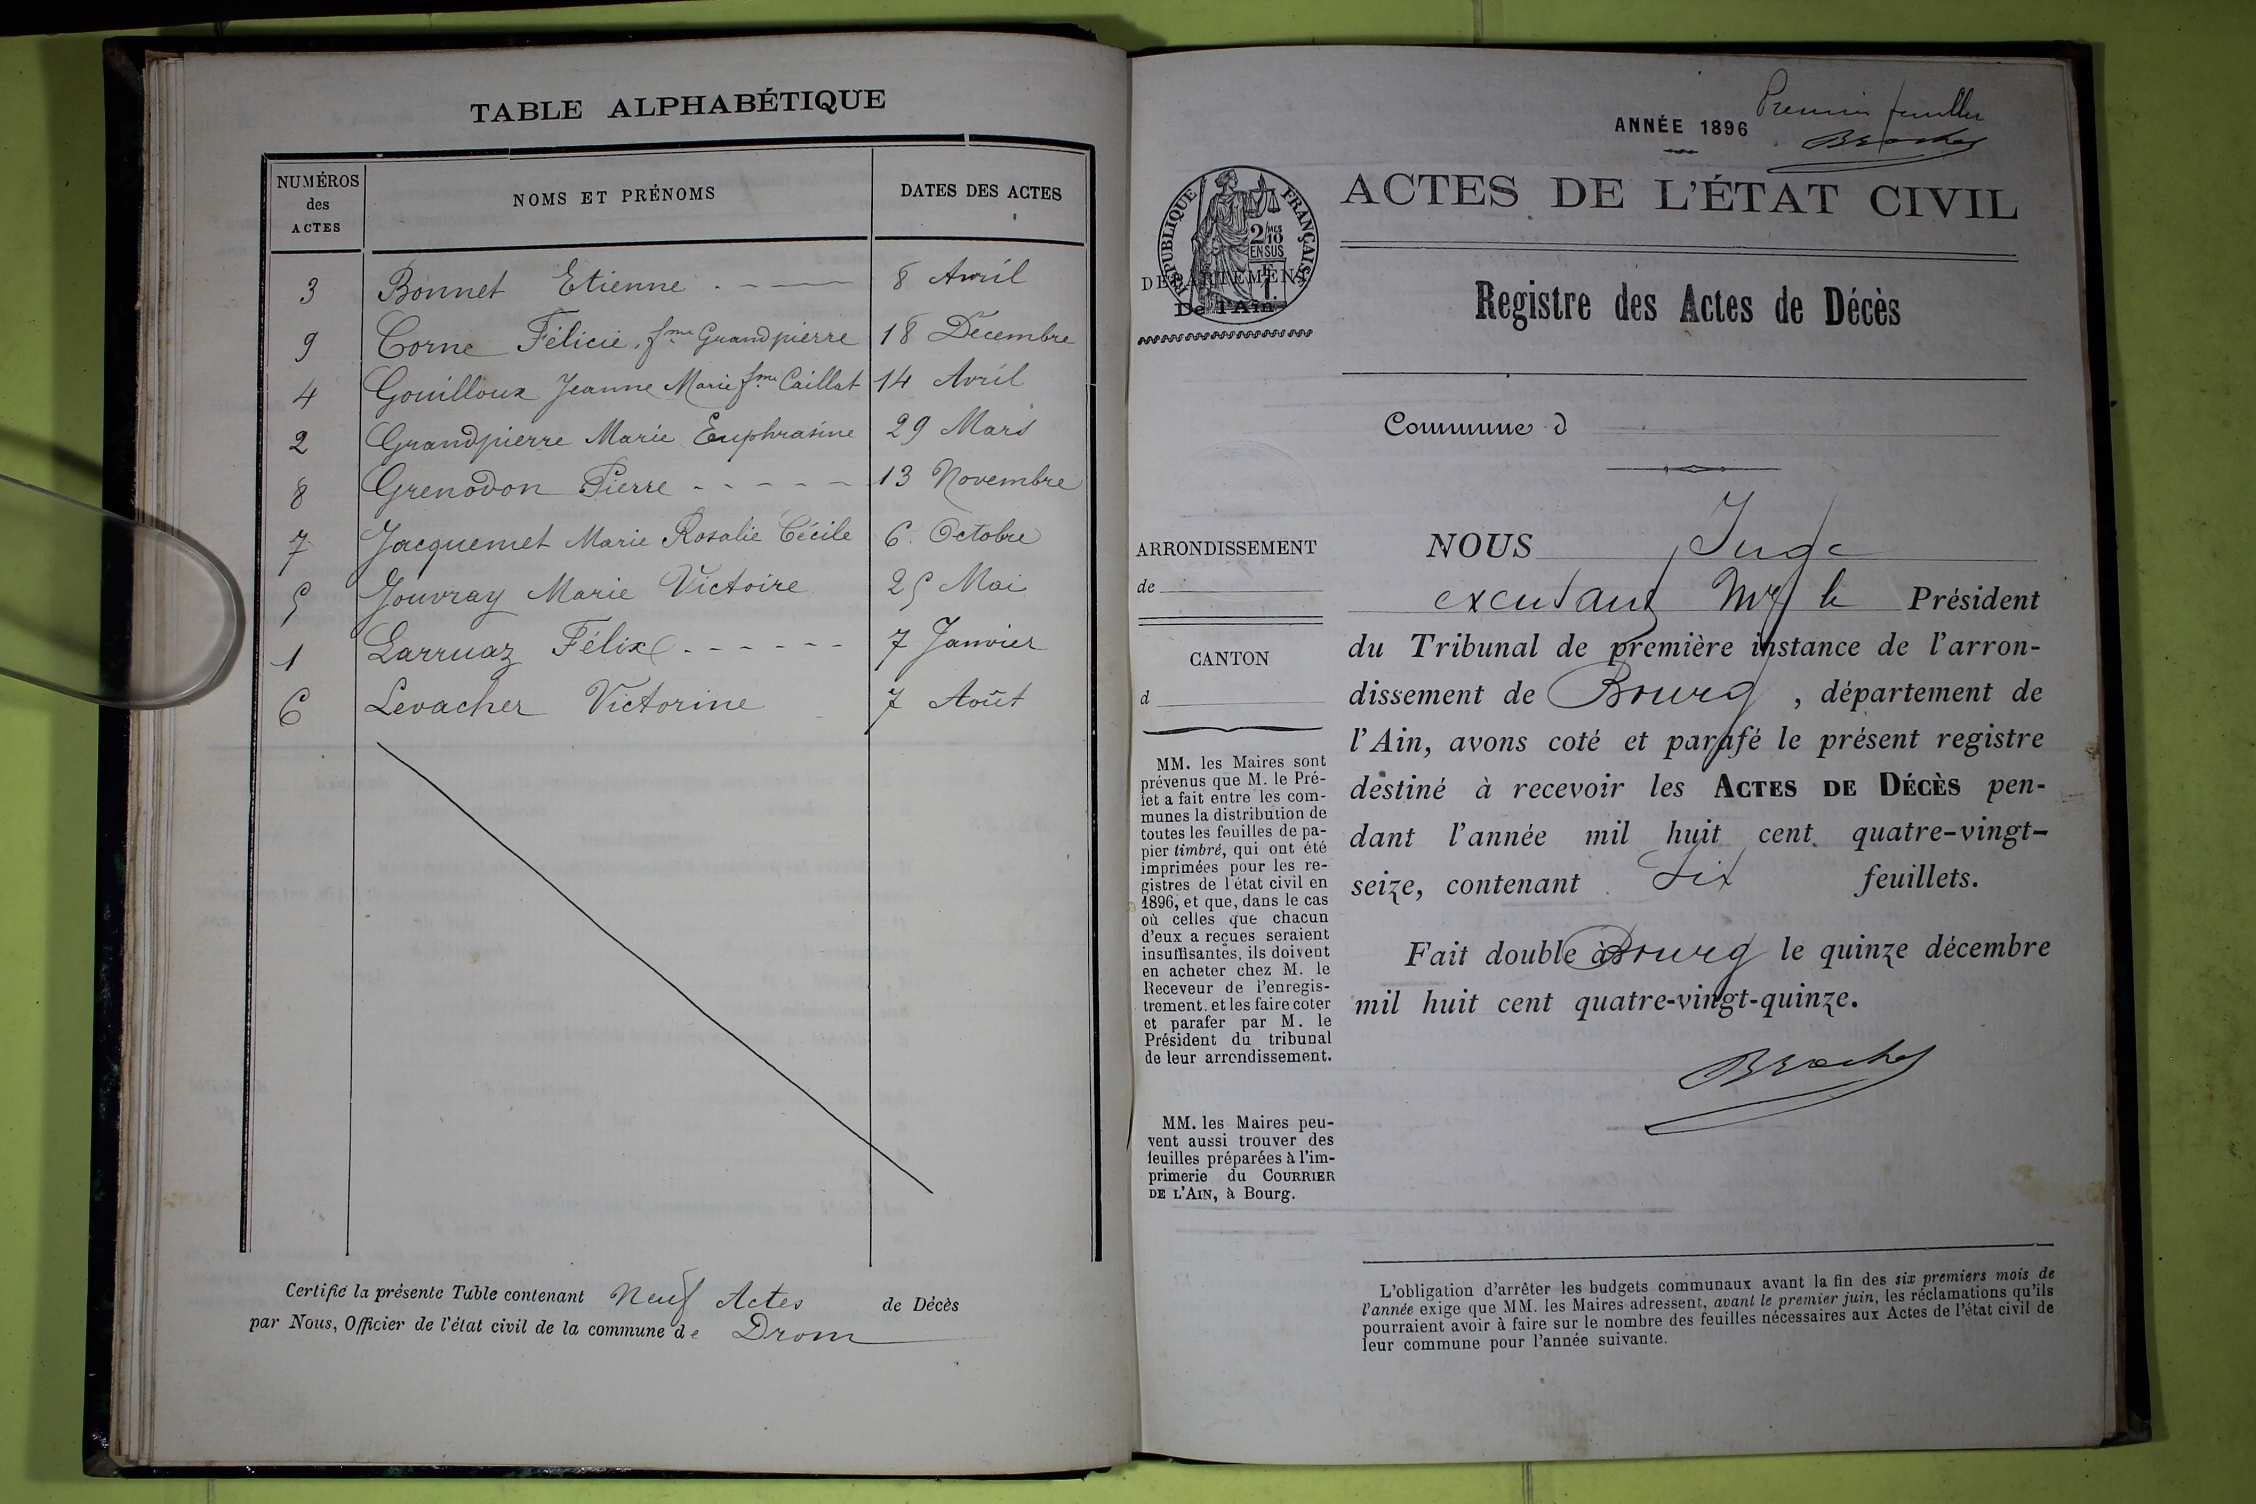 TABLE ALPHABÉTIQUE
NUMÉROS
des
ACTES
NOMS ET PRÉNOMS
DATES DES ACTES
3 Bonnet Etienne 8 Avril
9 Corne Félicie, fme Grandpierre 18 Décembre
4 Gouilloux Jeanne Marie fme Caillat 14 Avril
2 Grandpierre Marie Euphrasine 29 Mars
8 Grenodon Pierre 13 Novembre
7 Jacquemet Marie Rosalie Cécile 6 Octobre
5 Jouvray Marie Victoire 25 Mai
1 Larruaz Félix 7 Janvier
6 Levacher Victorine 7 Août
Certifié la présente Table contenant Neuf Actes de Décès
par Nous, Officier de l'état civil de la commune de Drom
ANNÉE 1896
Premier feuillet
RÉPUBLIQUE FRANÇAISE
2/10
EN SUS
DÉPARTEMENT
De l'Ain
ACTES DE L'ÉTAT CIVIL
Registre des Actes de Décès
Commune d
ARRONDISSEMENT
de
CANTON
d
MM. les Maires sont
prévenus que M. le Pré-
fet a fait entre les com-
munes la distribution de
toutes les feuilles de pa-
pier timbré, qui ont été
imprimées pour les re-
gistres de l'état civil en
1896, et que, dans le cas
où celles que chacun
d'eux a reçues seraient
insuffisantes, ils doivent
en acheter chez M. le
Receveur de l'enregis-
trement, et les faire coter
et parafer par M. le
Président du tribunal
de leur arrondissement.
MM. les Maires peu-
vent aussi trouver des
feuilles préparées à l'im-
primerie du COURRIER
DE L'AIN, à Bourg.
NOUS Juge
Mr le Président
du Tribunal de première instance de l'arron-
dissement de Bourg, département de
l'Ain, avons coté et parafé le présent registre
destiné à recevoir les ACTES DE DÉCÈS pen-
dant l'année mil huit cent quatre-vingt-
seize, contenant six feuillets.
Fait double à Bourg le quinze décembre
mil huit cent quatre-vingt-quinze.
L'obligation d'arrêter les budgets communaux avant la fin des six premiers mois de
l'année exige que MM. les Maires adressent, avant le premier juin, les réclamations qu'ils
pourraient avoir à faire sur le nombre des feuilles nécessaires aux Actes de l'état civil de
leur commune pour l'année suivante.